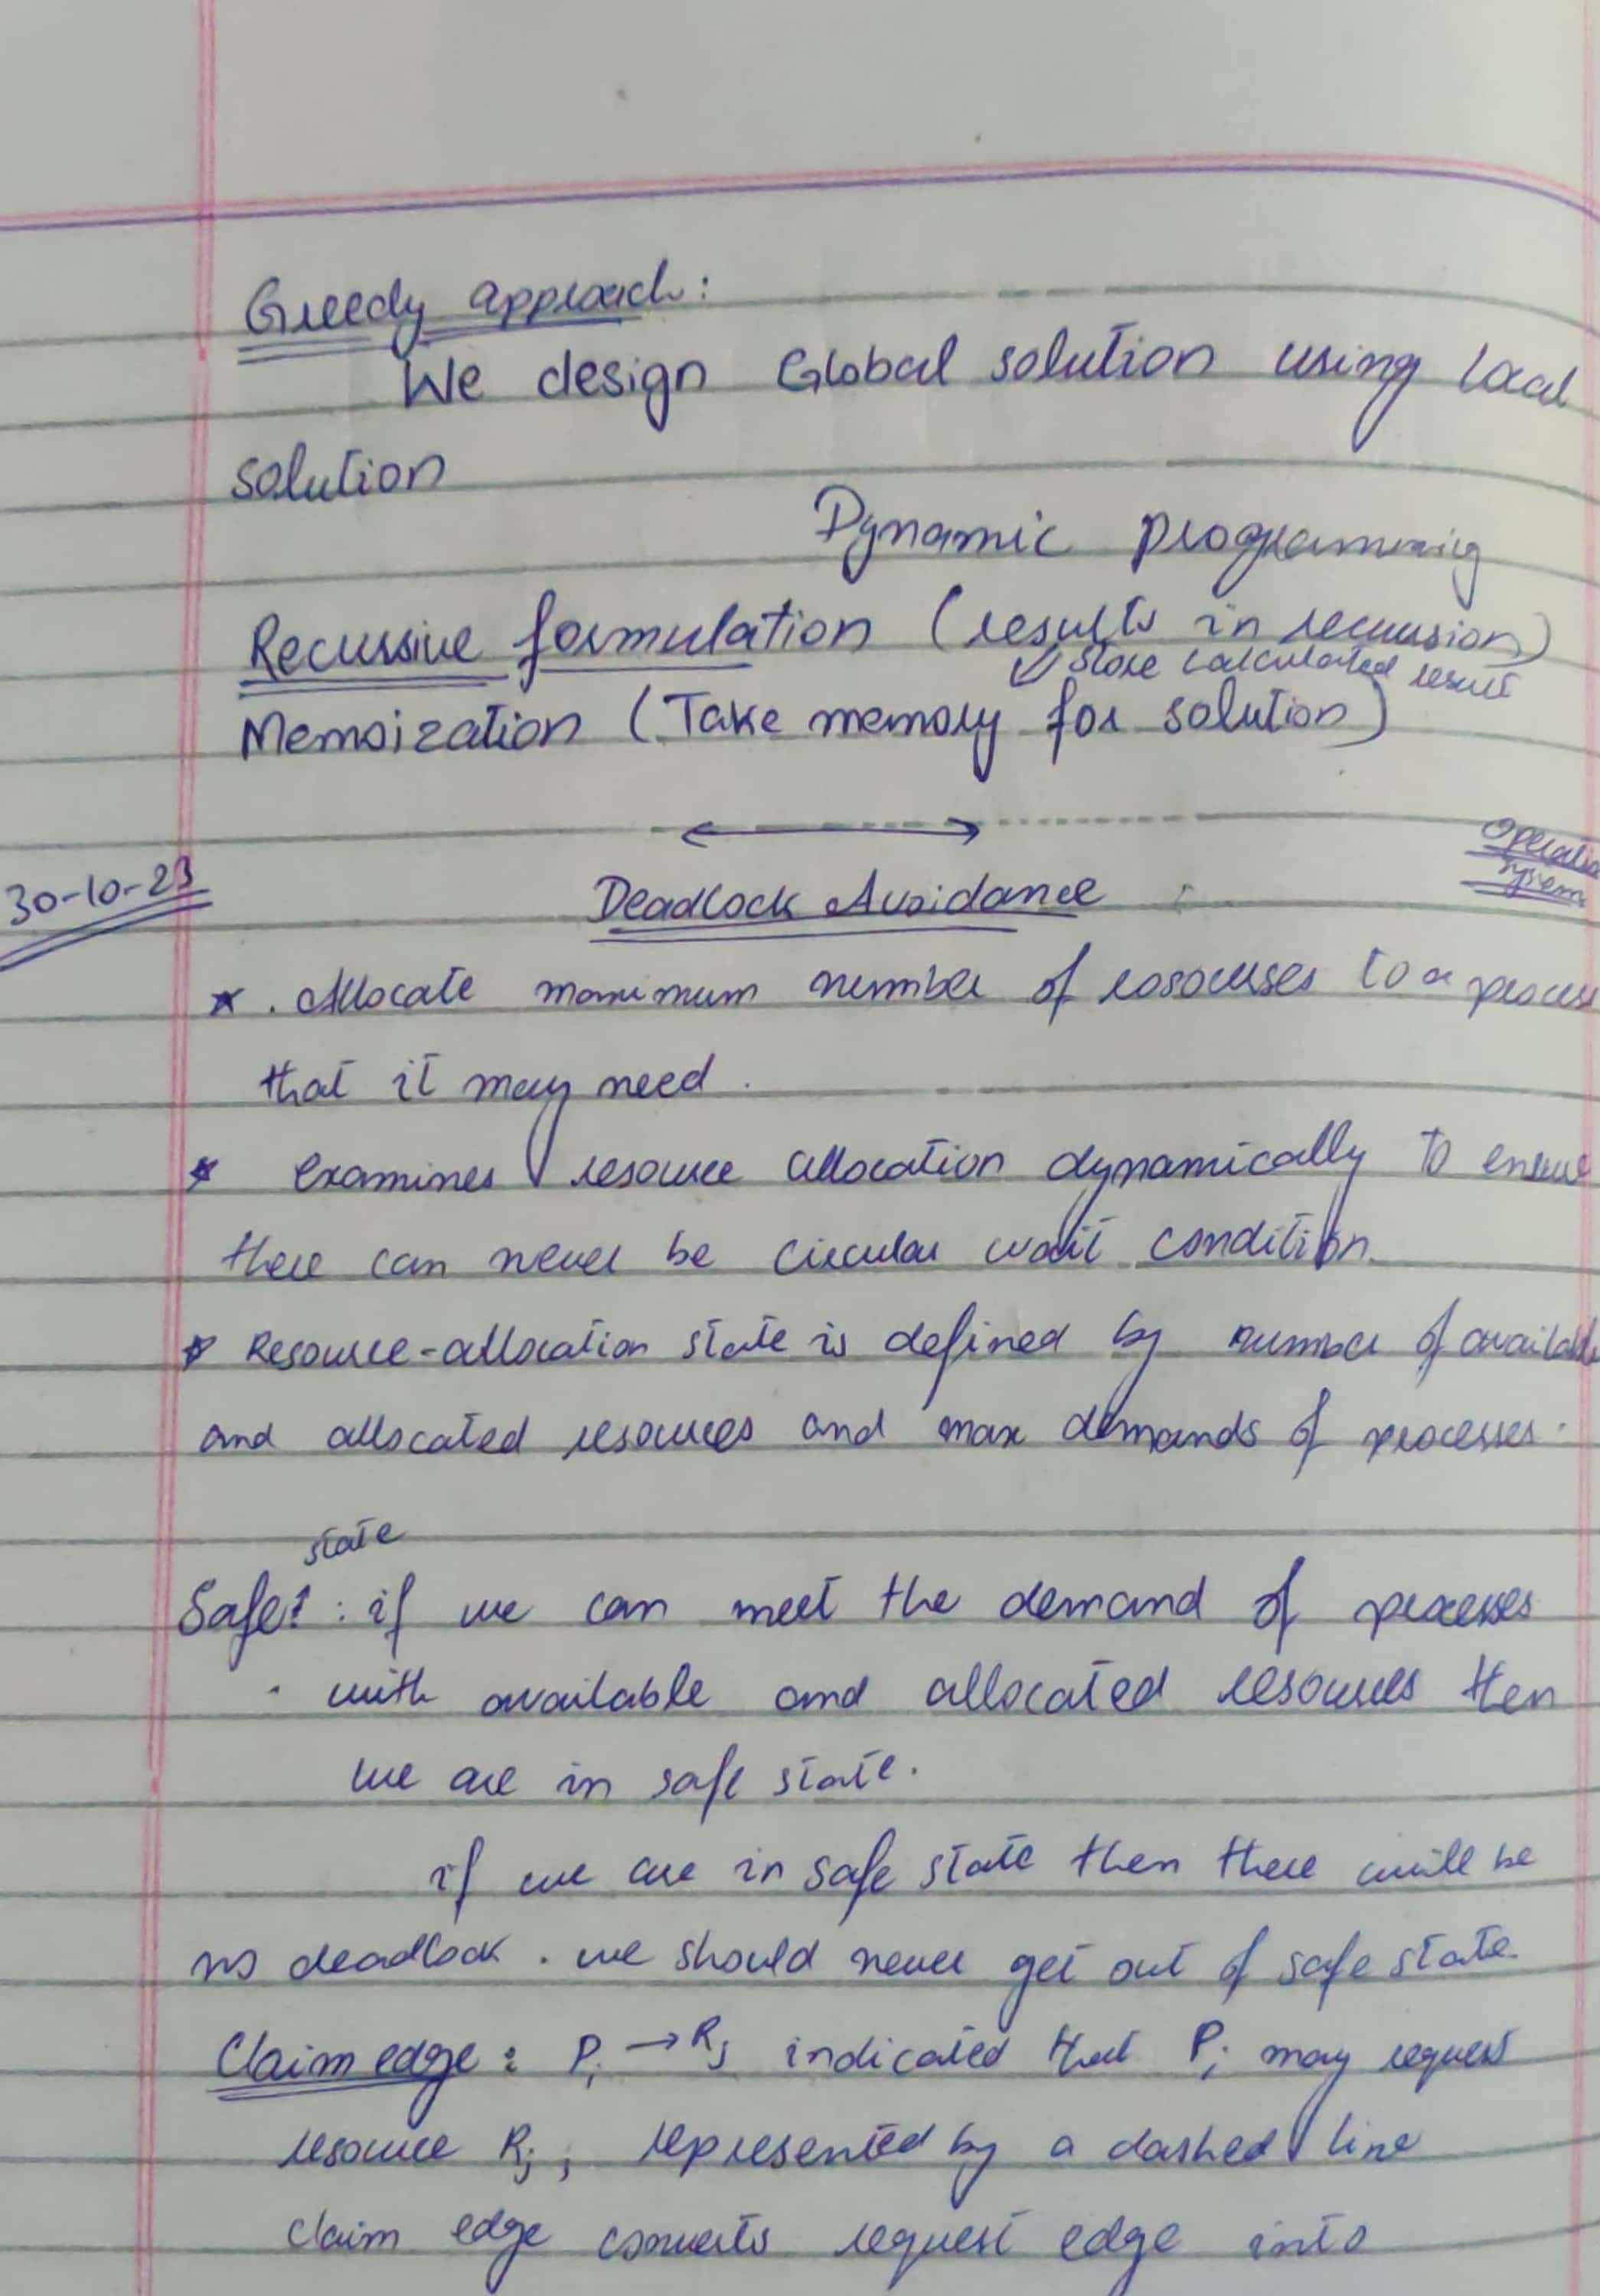 Greedy approach:
We design Global solution using local
solution
Dynamic programming
Recurssive formulation (results in recursion)
store calculated result
Memoization (Take memory for solution)
Operating
System
30-10-23
Deadlock Avoidance :
* . Allocate maximum number of rosocurses to a process
that it may need.
* examines resource allocation dynamically to ensure
there can never be circular wait condition.
* Resource-allocation state is defined by number of available
and allocated resources and max demands of processes.
state
Safe : if we can meet the demand of processes
with available and allocated resources then
we are in safe state.
if we are in safe state then there will be
no deadlock. we should never get out of safe state.
Claim edge : Pi → Rj indicated that Pi may request
resource Rj ; represented by a dashed line
claim edge converts request edge into